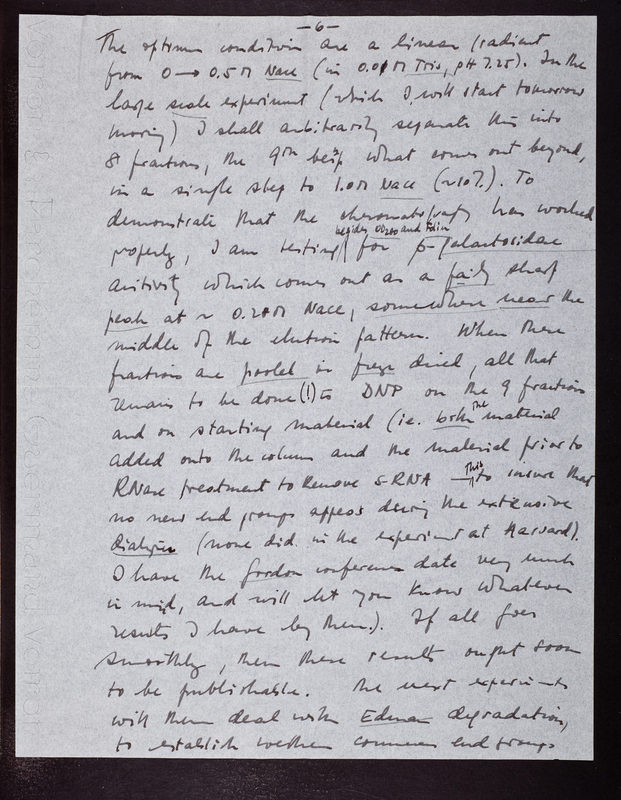 — 6 —
The optimum conditions are a linear gradient
from 0 → 0.5 M NaCl (in 0.01 M Tris, pH 7.25). In the
large scale experiment (which I will start tomorrow
morning) I shall arbitrarily separate this into
8 fractions, the 9th being what comes out beyond,
in a single step to 1.0 M NaCl (~10%). To
demonstrate that the chromatography has worked
besides OD280 and Folin
properly, I am testing for β-galactosidase
activity which comes out as a fairly sharp
peak at ~ 0.2 M NaCl, somewhere near the
middle of the elution pattern. When these
fractions are pooled in freeze dried, all that
remains to be done (!) is DNP on the 9 fractions
and on starting material (ie. both the material
added onto the column and the material prior to
RNase treatment to remove S-RNA — This to insure that
no new end groups appear during the extensive
dialysis (none did in the experiment at Harvard).
I have the Gordon conference date very much
in mind, and will let you know whatever
results I have by then.). If all goes
smoothly, then these results ought soon
to be publishable. The next experiments
will then deal with Edman degradation,
to establish wether common end groups